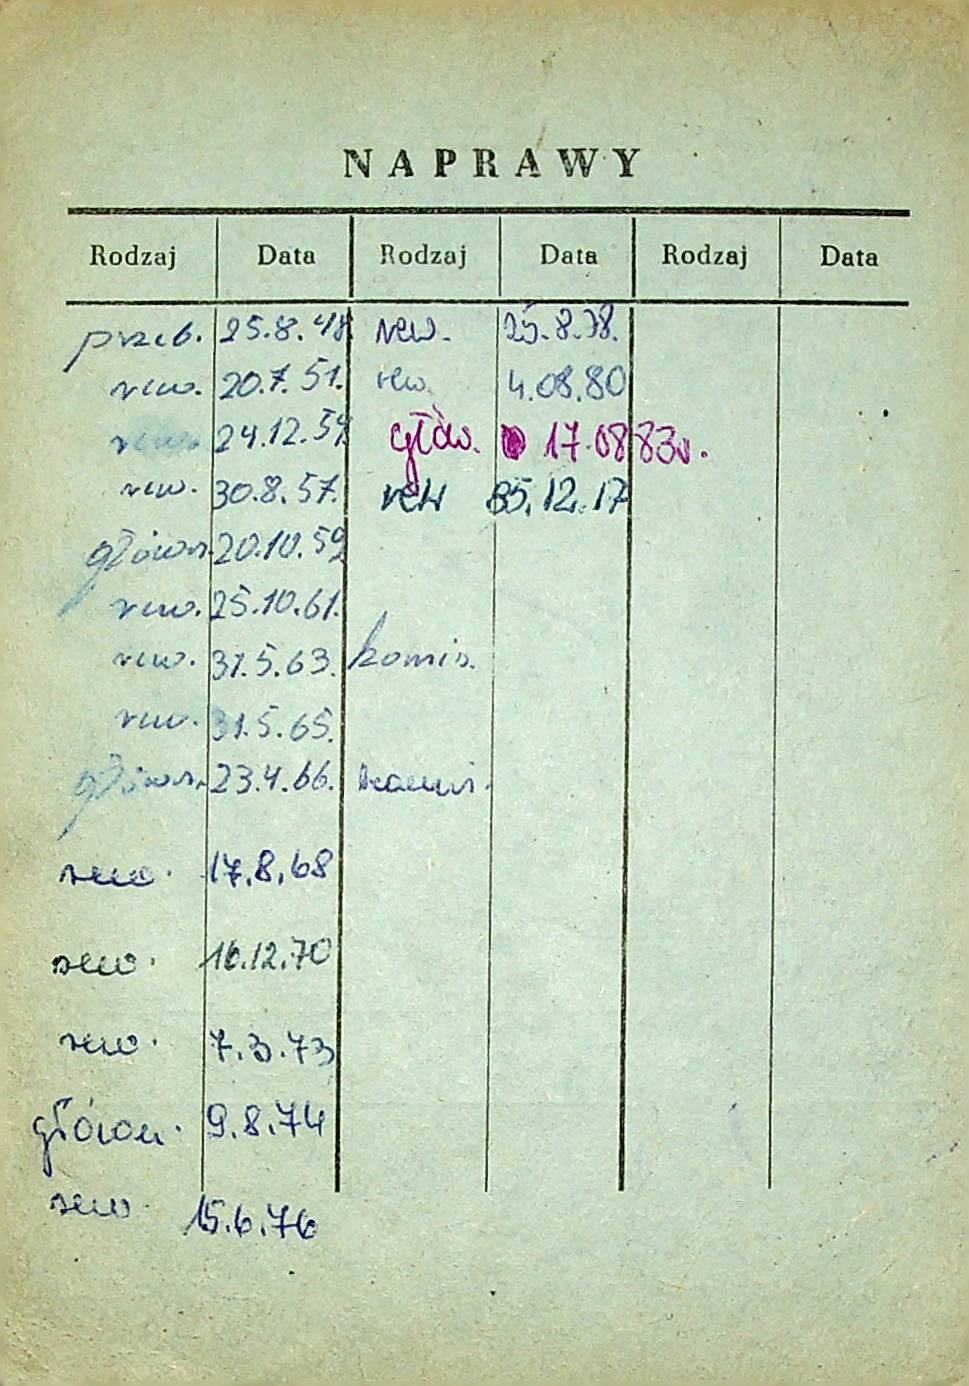 NAPRAWY
Rodzaj Data Rodzaj Data Rodzaj Data
przeb. 25.8.48 rew. 25.8.78.
rew. 20.7.51. rew. 4.08.80
rew. 24.12.54 głów. 17.08 83r.
rew. 30.8.57. rew 85.12.17
główn. 20.10.59
rew. 25.10.61.
rew. 31.5.63. komis.
rew. 31.5.65.
główn. 23.4.66. komis.
rew. 17.8.68
rew. 16.12.70
rew. 7.3.73
główn. 9.8.74
rew. 15.6.76